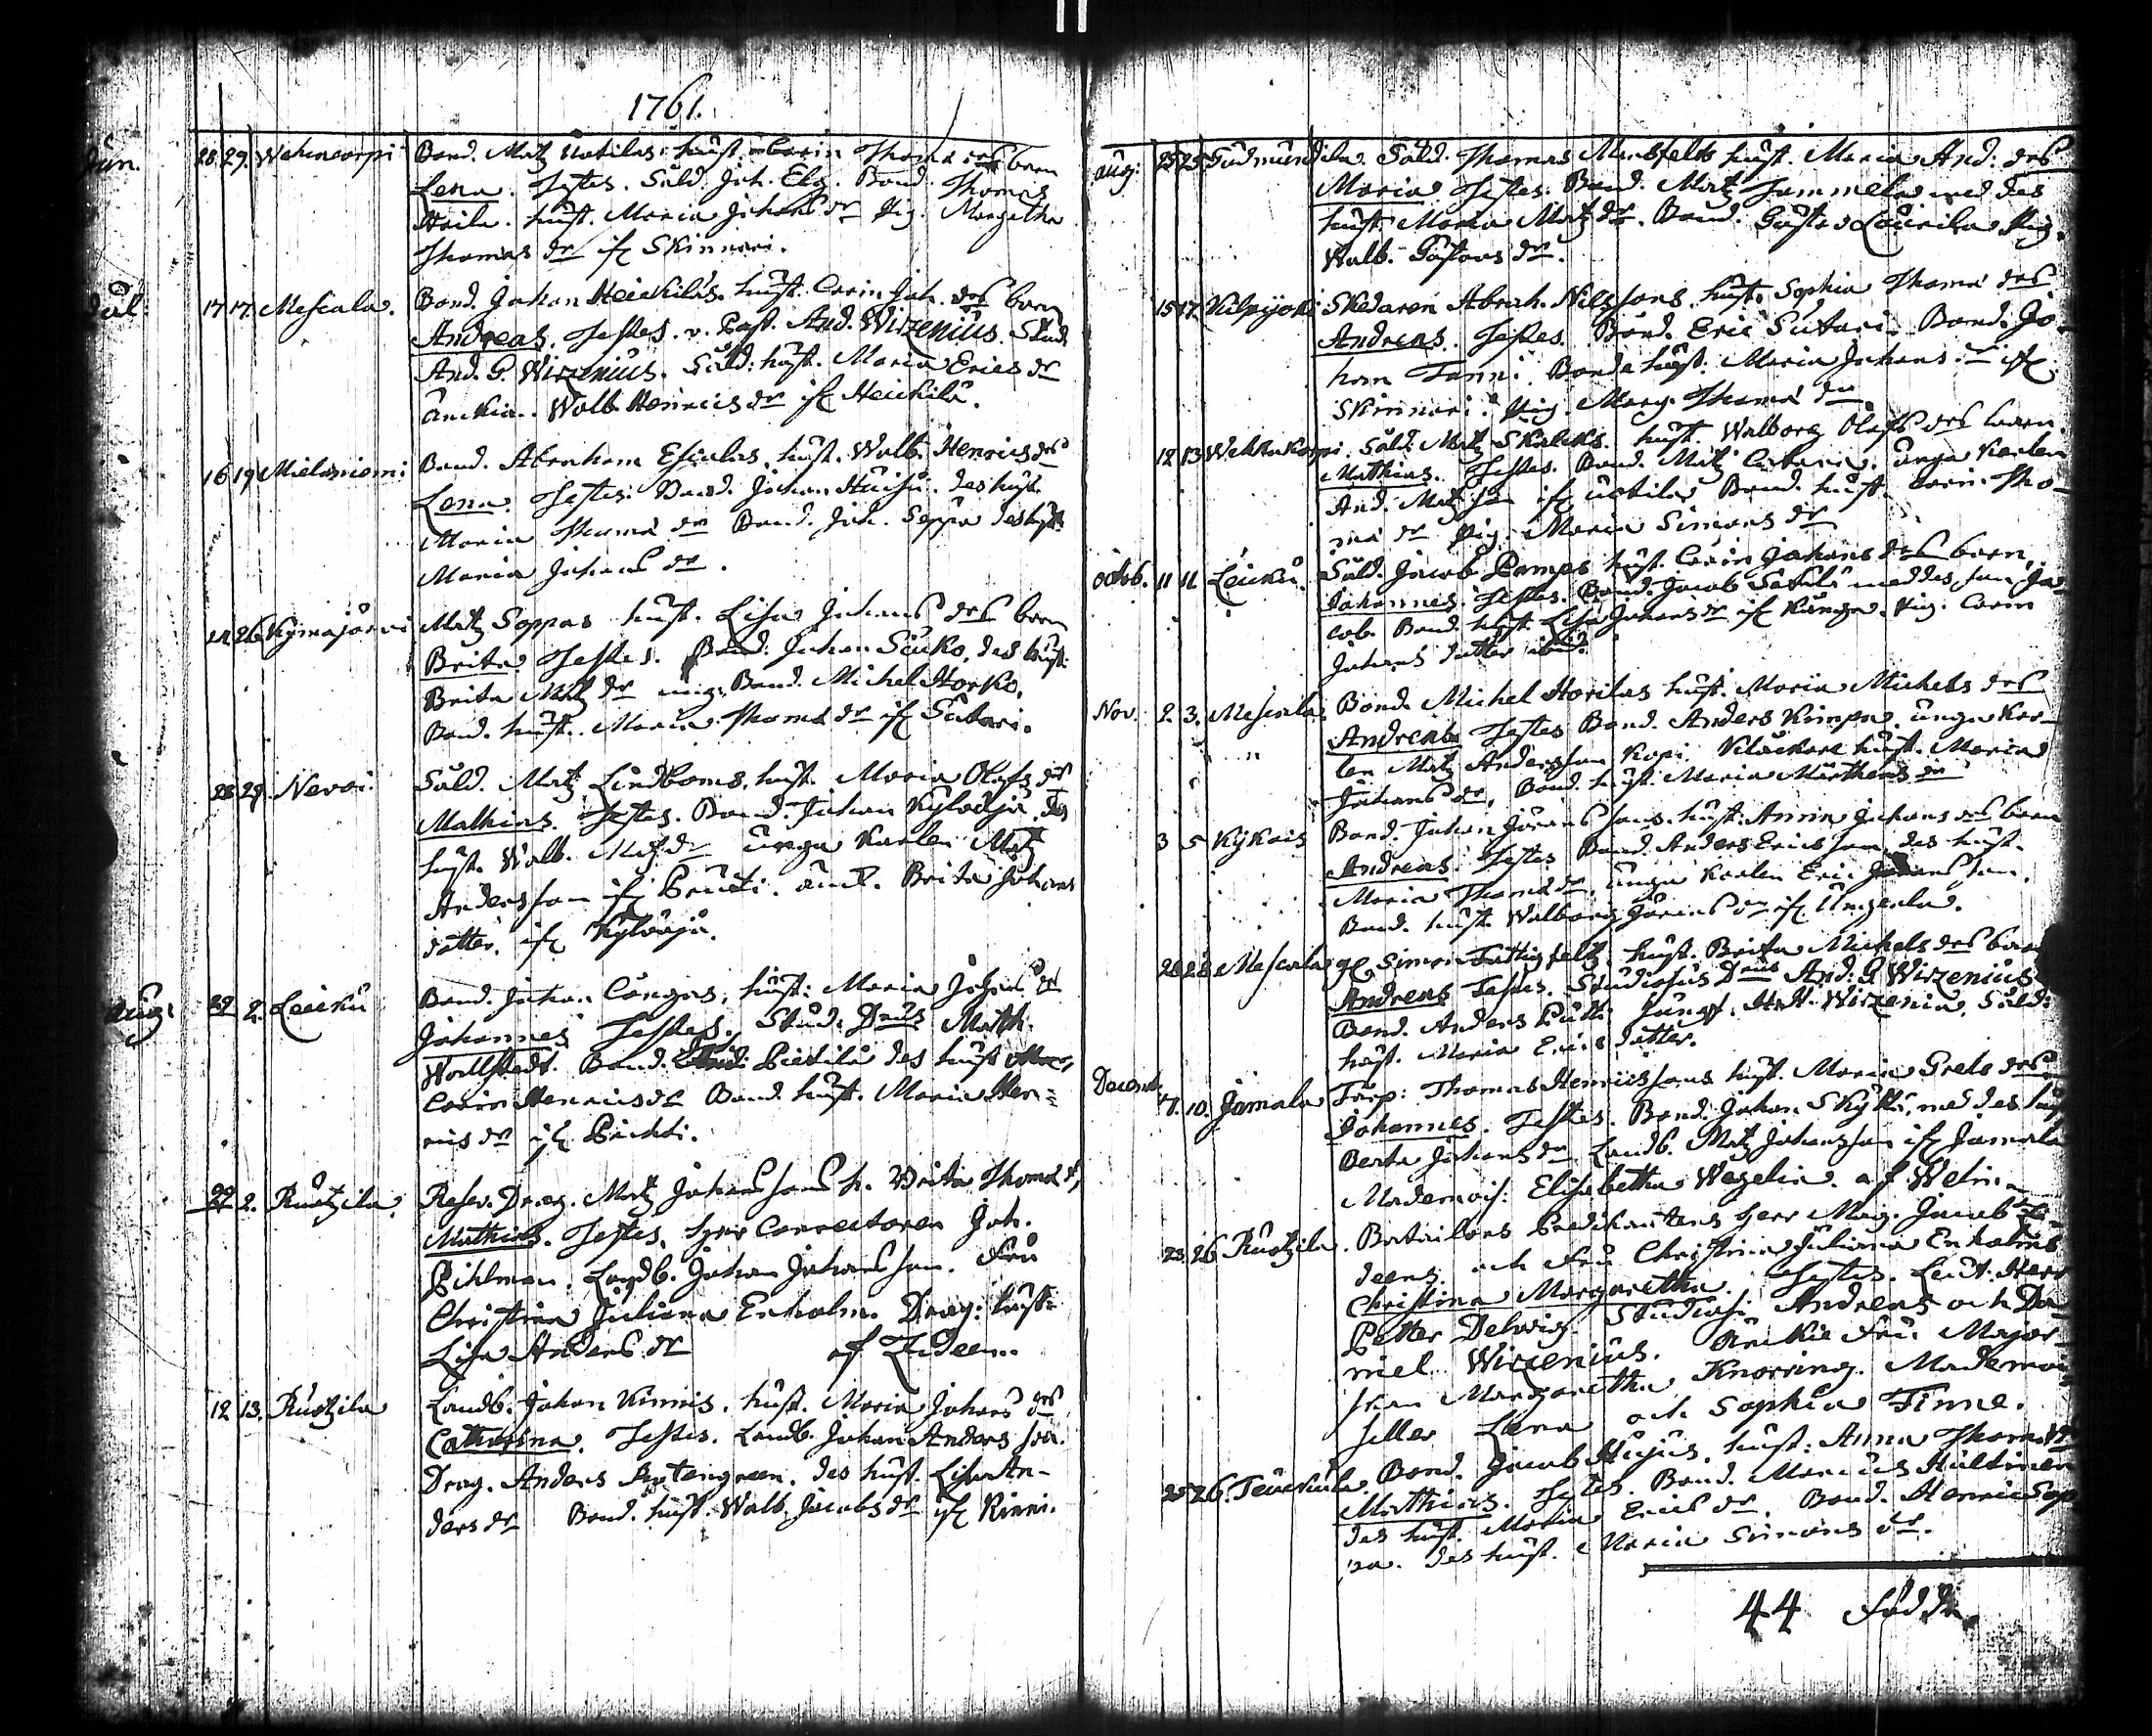 1761.
Jun. 28. 29. Wehmcorpi Bond. Matz Uotilas hust. Carin Thomæ drs barn
Lena. Testes. Sold. Joh. Elg. Bond. Thomas
Heila. hust. Maria Johans dr Pig. Margetha
Thomas dr if Skinnari.
Jul. 17 17. Mescala. Bond. Johan Heickilas. hust. Carin Joh. drs barn
Andreas. Testes. v. Past. And. Wirzenius. Stud.
And. G. Wirzenius. Sold. hust. Maria Erics dr
änckia. Walb. Henrics dr if Heickilä.
16 19 Mielaniemi Bond. Abraham Eskolas. hust. Walb. Henrics drs
Lena. Testes. Bond. Johan Huisu. des hust.
Maria Thomæ dr Bond. Joh. Seppä des hust.
Maria Johans dr.
24 26 Kymajärvi Matz Soppas hust. Lisa Johans drs barn
Brita. Testes. Bond. Johan Siuko, des hust.
Brita Matz dr ung. Bond. Michel Horko,
Bond. hust. Maria Thomæ dr if Sutari.
28 29. Nevoi. Sold. Matz Lindboms. hust. Maria Olofs drs
Mathias. Testes. Bond. Johan Kylväjä, des
hust. Walb. Matz dr unga Karlen Matz
Andersson if Prusti. änk. Brita Johans
dotter if Kylväjä.
Aug: 29 2. Leicku Bond. Johan Cangas, hust: Maria Johans dr
Johannes Testes. Stud. Dnus Math.
Wallstedt. Bond. And. Pietilä des hust
Carin Henrics dr Bond. hust. Maria Hen-
rics dr if Pichti.
29 2. Ruotzila. Reserv. Drag. Matz Johanssons h. Brita Thomæ dr,
Mathias. Testes. herr Conrectoren Joh.
Pihlman. Landb. Johan Johansson. Fru
Christina Juliana Enholm. Drag: hust.
Lisa Anders dr af Zideen.
12 13. Ruotzila Landb. Johan Kinnis. hust. Maria Johans drs
Catharina. Testes. Landb. Johan Andersson.
Drag. Anders Rotengreen. des hust. Lisa An-
ders dr Bond. hust. Walb. Jacobs dr if Kinni.
Aug: 25 25 Gudmundila. Sold. Thomas Mansfelts hust. Maria And: drs
Maria. Testes. Bond. Matz Sammela med des
hust. Maria Matz dr. Bond. Gustav Laurila Pig.
Walb. Gustavs dr.
15 17. Kilpijoki Skedaren Abrah. Nilssons. hust. Sophia Thomæ drs
Andreas. Testes. Bond. Eric Sutari. Bond. Jo-
han Tanni. Bonde hust. Maria Johans dr if
Skinnari. Pig. Marg. Thomæ dr
12 13 Wehkakorpi. Sold. Matz Skalcks. hust. Walborg Olofs drs barn.
Mathias. Testes. Bond. Matz unga Karlen
And. Matzson if Uotila Bond. hust. Carin Tho-
mæ dr Pig. Maria Simons dr
Octob. 11 11 Leicku. Sold. Jacob Pamps hust. Carin Johans drs barn,
Johannes. Testes. Bond. Jacob med des son Ja-
cob. Bond. hust. Lisa Johans dr if Kånga. Pig. Carin
Johans dotter ibid.
Nov. 2. 3. Mescala. Bond. Michel Horilas hust. Maria Michels drs
Andreas Testes Bond. Anders Kimpa. unga Kar-
len Matz Andersson Kopi. Klockare hust. Maria
Johans dr. Bond. hust. Maria Mårthens dr
3 5 Kykais Bond. Johan Jöranssons. hust. Anna Johans drs barn
Andreas. Testes Bond. Anders Ericsson. des hust.
Maria Thomæ dr. unga Karlen Eric Johansson.
Bond. hust. Walborg Jörans dr if Ungerla.
28 28 Mescala gl. Simon hust. Brita Michels drs barn
Andreas Testes. Studiosus Dnus And. G. Wirzenius
Bond. Anders Putti Jungf. H. H. Wirzenia. Sold.
hust. Maria Erics dotter.
Decemb. 7. 10. Jamala Torp: Thomas Henricssons hust. Maria Grels drs
Johannes. Testes. Bond. Johan Skyttä, med des hust
Berta Johans dr. Landb. Matz Johansson if Jamala
Mademois: Elisabetha Wegelia. af
23 26 Ruotzila. Bataillons Predikantens herr Mag. Jacob Zi-
deens och Fru Christina Juliana Enholms
Christina Margaretha. Testes. Leut. Herr
Petter Delwig. Studiosi Andreas och Da-
niel Wirzenius. Änkie Fru Major-
skan Margaretha Knorring. Mademoi-
seller Lena och Sophia Finne.
25 26. Teuckula. Bond. Jacob Hujus. hust: Anna Thomæ dr
Mathias. Testes. Bond. Marcus Hultinen
des hust. Maria Erics dr. Bond. Henric Sep-
pä. des hust. Maria Simons dr.
44 Födde